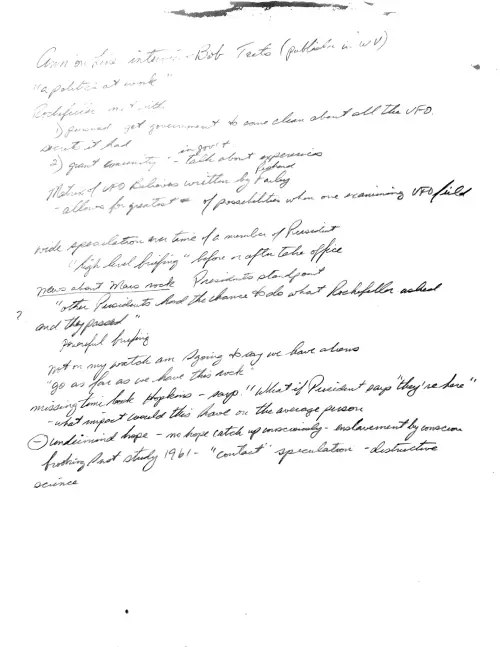 Ann on line interview - Bob Teets (publisher in WV)
"a politics at work"
Rockefeller met with
1) pursued get government to come clean about all the UFO.
secrets it had
in gov't
2) grant community - talk about experiences
Matrix of UFO Believes written by Richard Farley
- allows for greatest # of possibilities when one examining UFO field
wide speculation over time of a member of President
"high level briefing" before or after take office
news about Mars rock Presidents standpoint
? "other Presidents had the chance to do what Rockefeller asked
and they passed"
powerful briefing
not on my watch am I going to say we have aliens
"go as far as we have this rock"
missing time book Hopkins - says "What if President says "they're here"
- what impact would this have on the average person
undermind hope - no hope catch up consciously - enslavement by conscious
brooking inst study 1961 - "contact" speculation - destructive
science